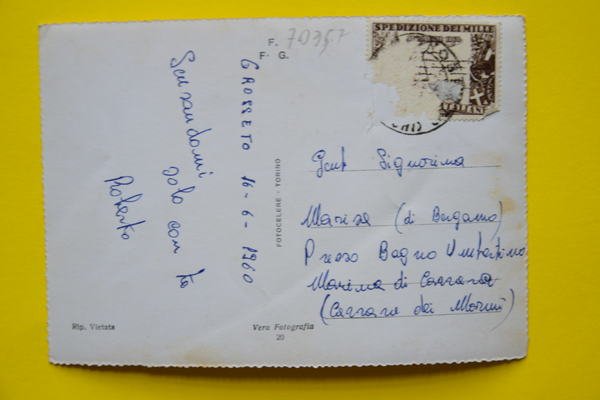 F. 70357
F. G.
SPEDIZIONE DEI MILLE
ITALIANE
GROSSETO 16-6-1960
Scusandomi
solo con te
Roberto
FOTOCELERE - TORINO
Gent Signorina
Marisa (di Bergamo)
Presso Bagno Umbertino
Marina di Carrara
(Carrara dei Marmi)
Rip. Vietata
Vera Fotografia
20